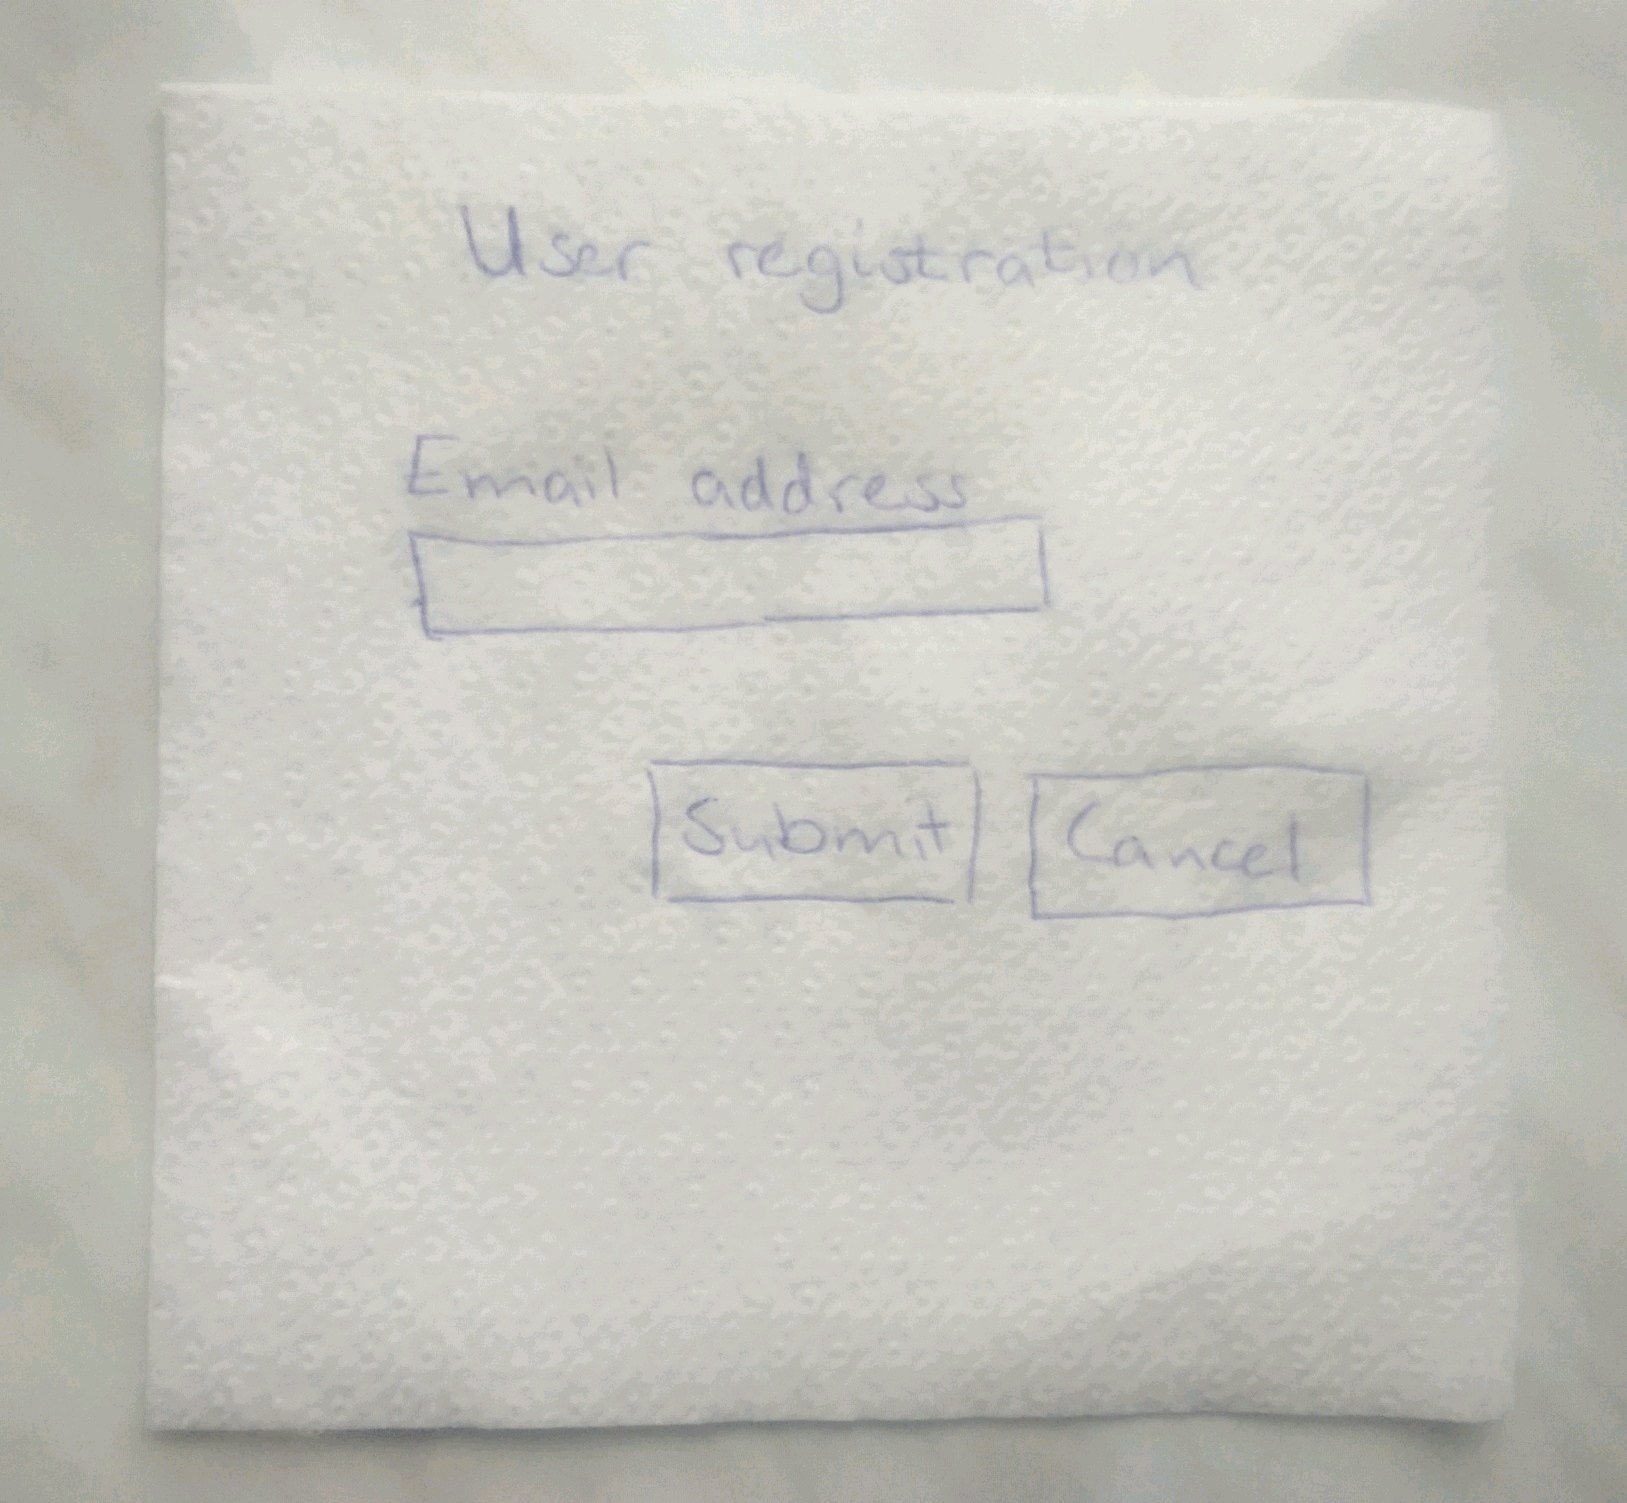 User registration
Email address
Submit
Cancel